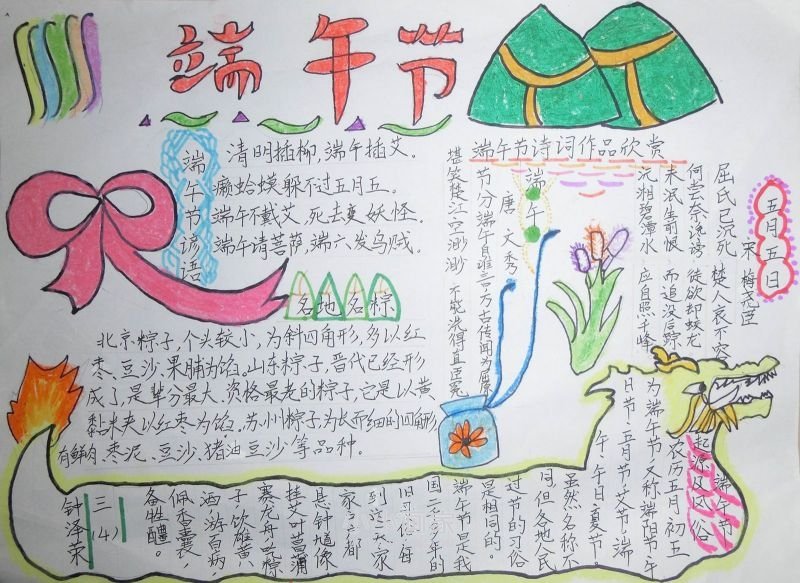 端午节
端午节谚语
清明插柳,端午插艾。
癞蛤蟆躲不过五月五。
端午不戴艾,死去变妖怪。
端午请菩萨,端六发乌贼。
各地名粽
北京粽子,个头较小,为斜四角形,多以红
枣、豆沙、果脯为馅。山东粽子,晋代已经形
成了,是辈分最大、资格最老的粽子,它是以黄
黏米夹以红枣为馅。苏州粽子为长而细的四角形,
有鲜肉、枣泥、豆沙、猪油豆沙等品种。
端午节诗词作品欣赏
端午
唐 文秀
节分端午自谁言,万古传闻为屈原
堪笑楚江空渺渺,不能洗得直臣冤
五月五日
宋 梅尧臣
屈氏已沉死,楚人哀不容
何尝奈谗谤,徒欲却蛟龙
未泯生前恨,而追没后踪
沅湘碧潭水,应自照千峰
端午节
起源及风俗
农历五月初五
为端午节,又称端阳节、午
日节、五月节、艾节、端
午、午日、夏节。
虽然名称不
同,但各地人民
过节的习俗
是相同的。
端午节是我
国二千多年的
旧习俗,每
到这一天,家
家户都
悬钟馗像,
挂艾叶菖蒲,
赛龙舟,吃粽
子,饮雄黄,
洒,游百病,
佩香囊,
备牲醴。
三(4)
钟泽荣